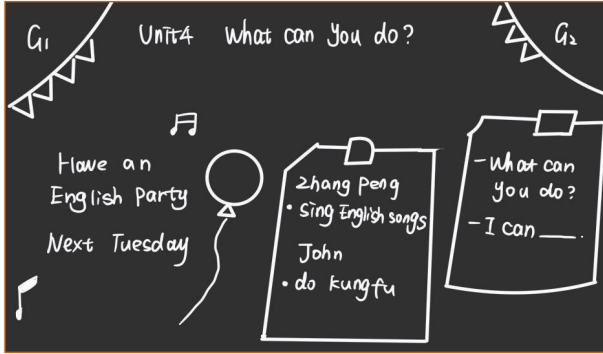 G1
Unit4 What can you do?
G2
Have an
English Party
Next Tuesday
Zhang Peng
• sing English songs
John
• do kungfu
-What can
you do?
-I can ____.